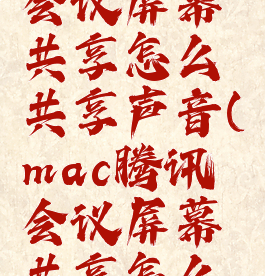 会议屏幕
共享怎么
共享声音(
mac腾讯
会议屏幕
共享怎么